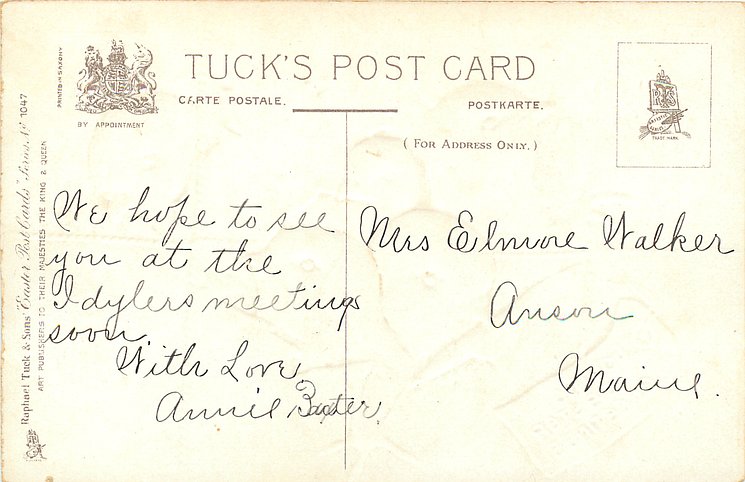 PRINTED IN SAXONY
BY APPOINTMENT
TUCK'S POST CARD
CARTE POSTALE.
POSTKARTE.
( FOR ADDRESS ONLY. )
TRADE MARK
Raphael Tuck & Sons' "Easter Post Cards" Series No 1047
ART PUBLISHERS TO THEIR MAJESTIES THE KING & QUEEN
We hope to see
you at the
Idylers meeting
soon.
With Love
Annie Baxter.
Mrs Elmore Walker
Anson
Maine.